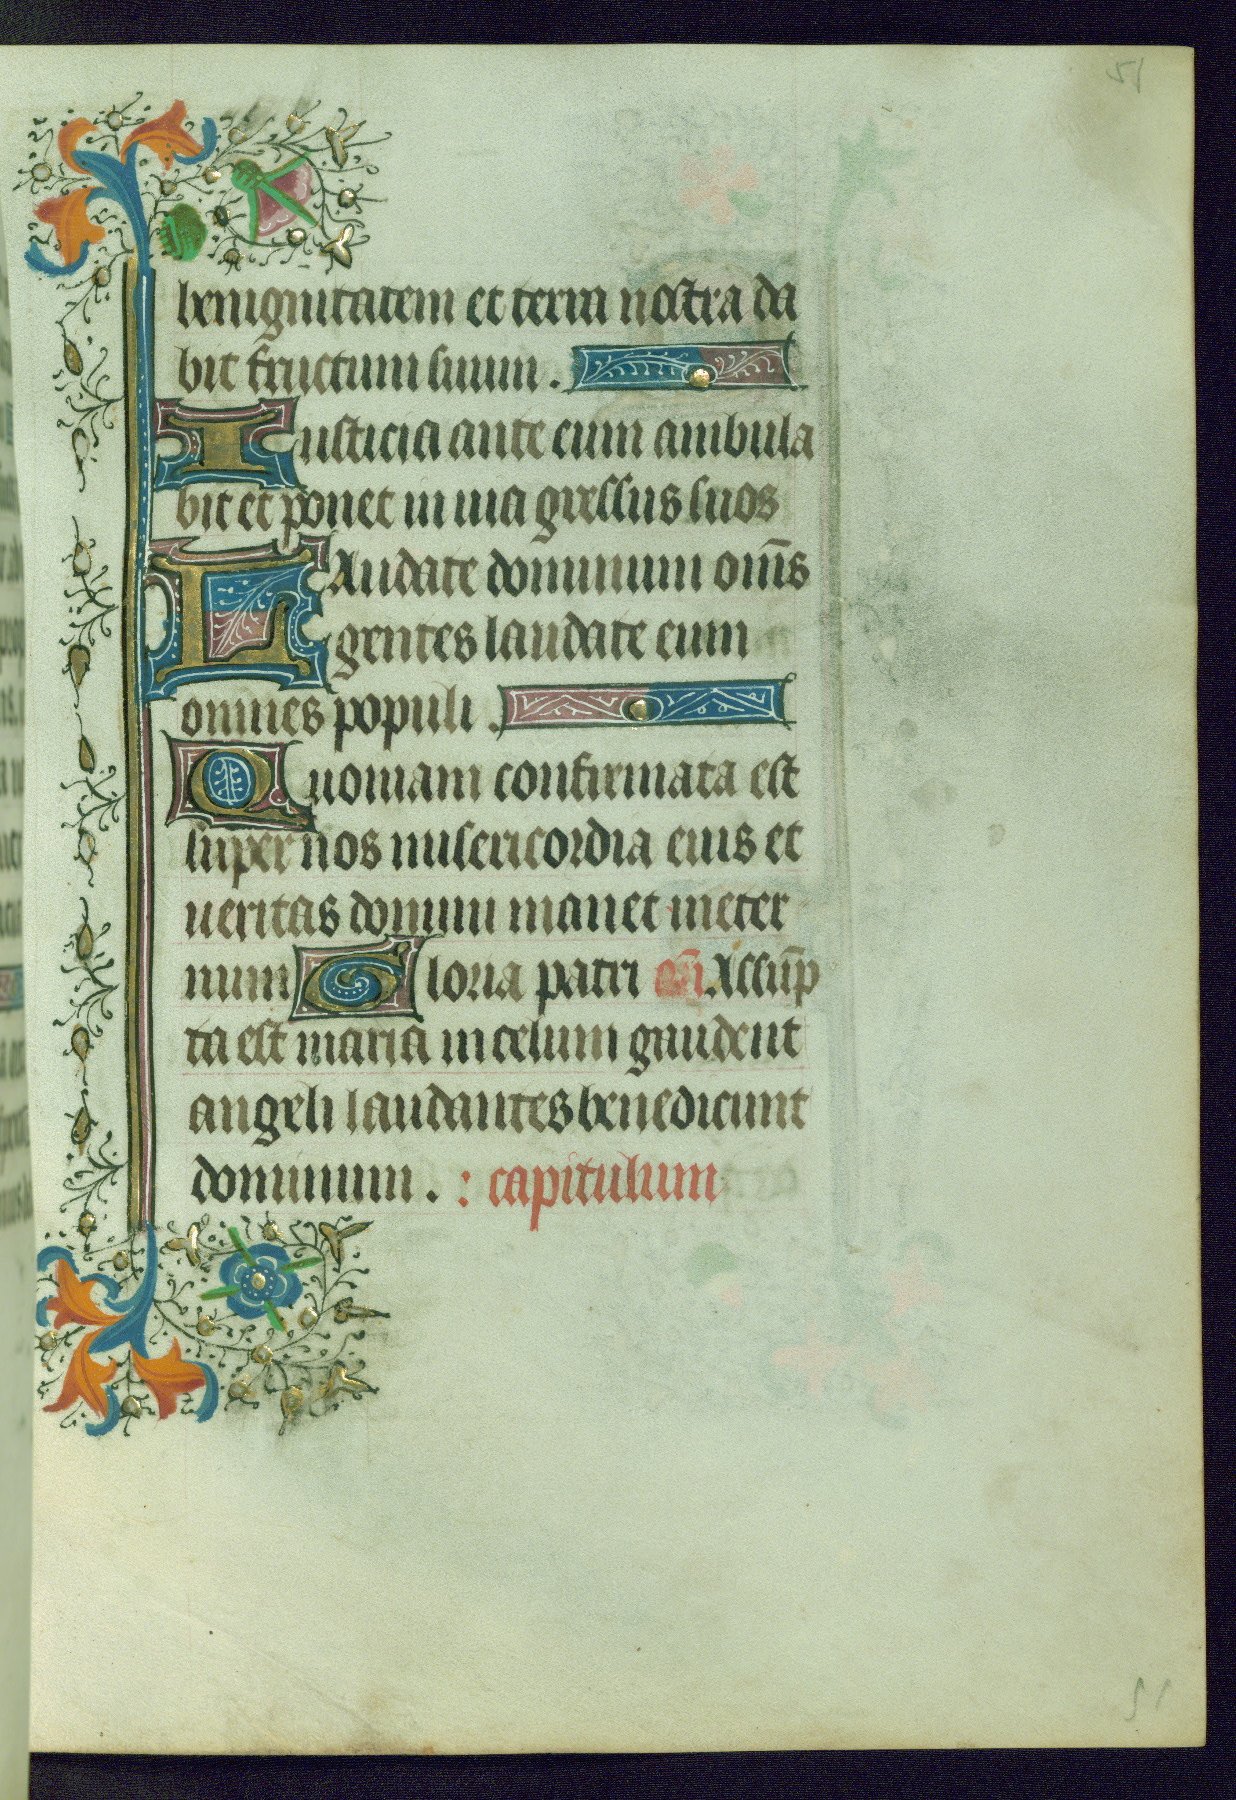 51
benignitatem et terra nostra da
bit fructum suum.
Iusticia ante eum ambula
bit et ponet in uia gressus suos
LAudate dominum om̅s
gentes laudate eum
omnes populi.
Quoniam confirmata est
super nos misericordia eius et
ueritas domini manet ineter
num Gloria patri an̅ Assu̅p
ta est maria in celum gaudent
angeli laudantes benedicunt
dominum. : capitulum
51